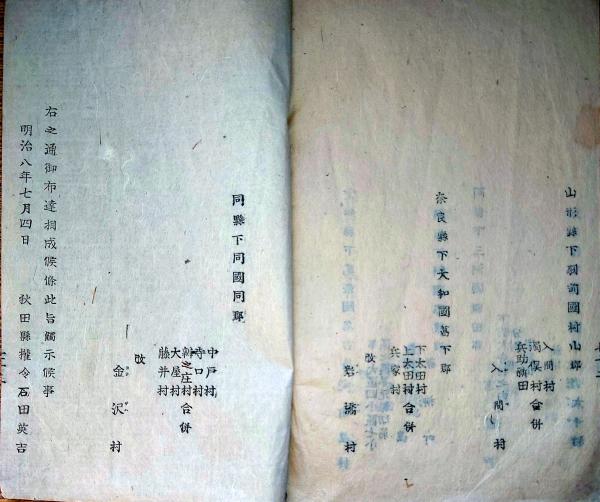 山形縣下羽前國村山郡
入間村
濁俣村合併
兵助新田
入間村
奈良縣下大和國葛下郡
下太田村
上太田村合併
兵家村
改
同縣下同國同郡
中戸村
寺口村
新之庄村合併
大屋村
藤井村
改
金沢村
右之通御布達相成候條此旨觸示候事
明治八年七月四日
秋田縣權令石田英吉